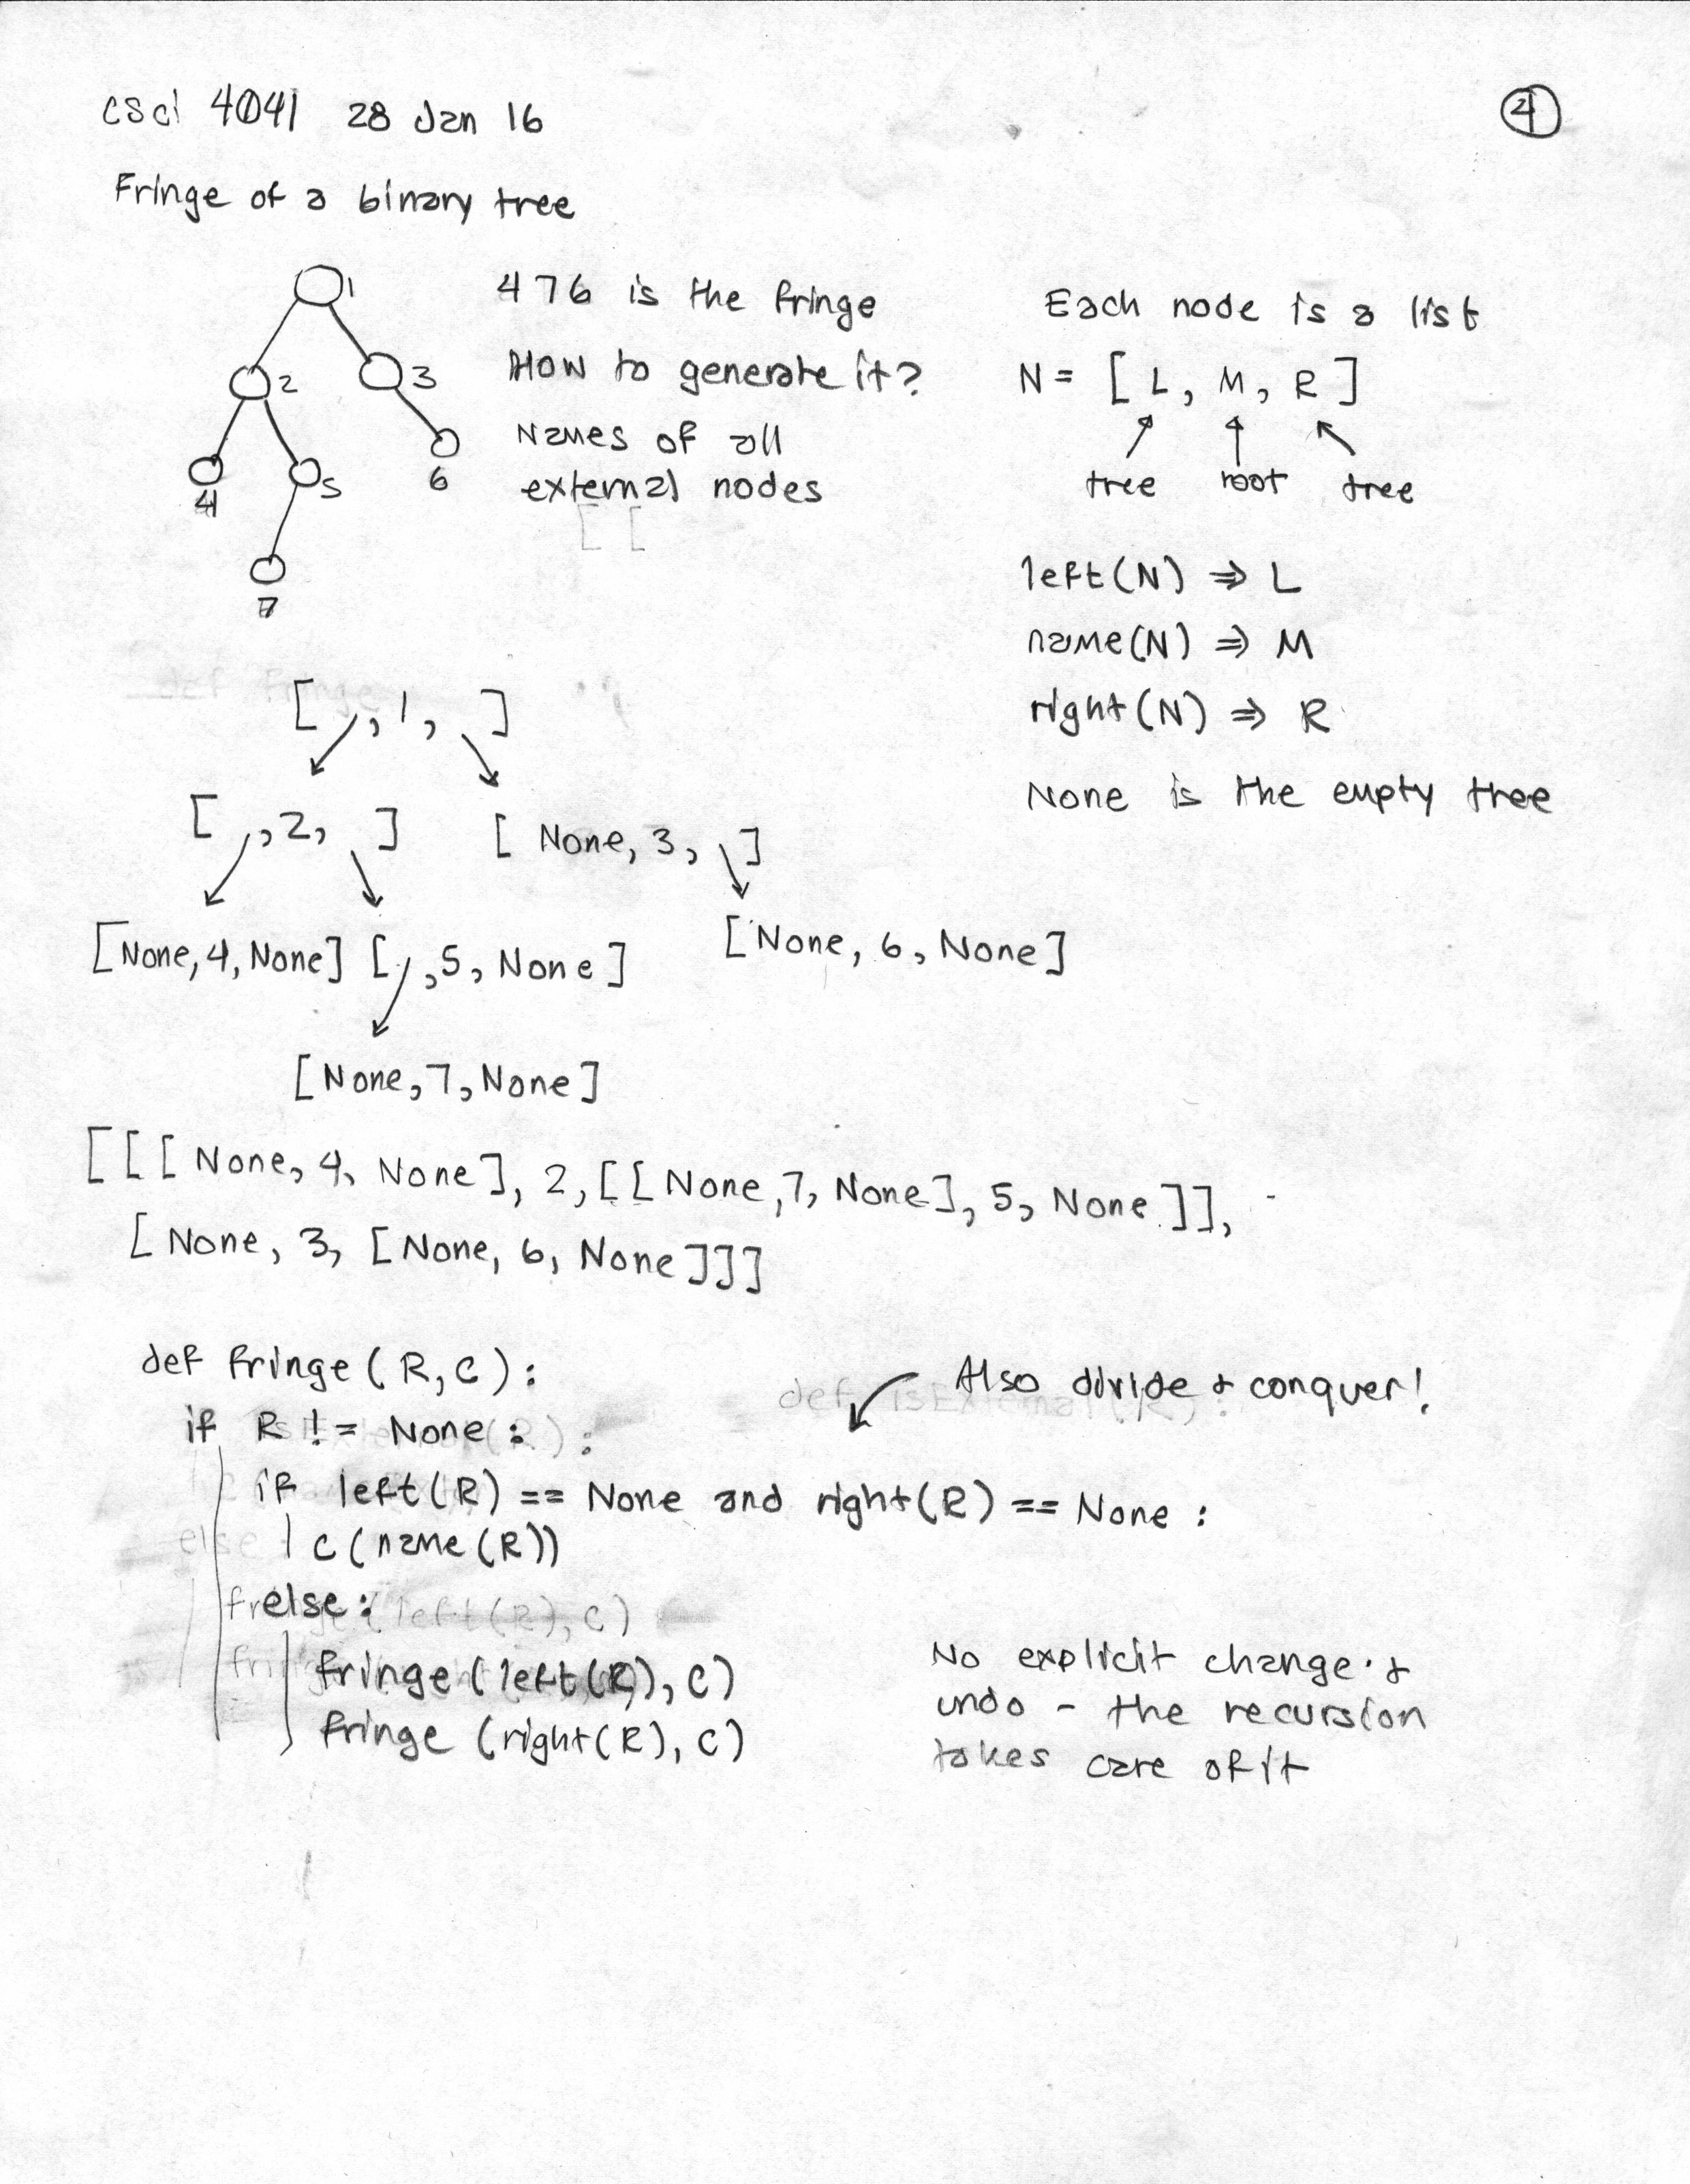 csci 4041 28 Jan 16
4
Fringe of a binary tree
1
2
3
4
5
6
7
476 is the fringe
How to generate it?
Names of all
external nodes
[ [
Each node is a list
N = [ L, M, R ]
tree root tree
left(N) ⇒ L
name(N) ⇒ M
right(N) ⇒ R
None is the empty tree
[ , 1, ]
[ , 2, ] [ None, 3, ]
[None, 4, None] [ , 5, None ] [None, 6, None]
[None, 7, None]
[[[ None, 4, None ], 2, [[ None, 7, None ], 5, None ]],
[ None, 3, [None, 6, None ]]]
def fringe ( R, C ) :
if R != None :
if left(R) == None and right(R) == None :
C ( name (R))
else :
fringe ( left(R), C )
fringe ( right(R), C )
Also divide & conquer!
No explicit change &
undo - the recursion
takes care of it